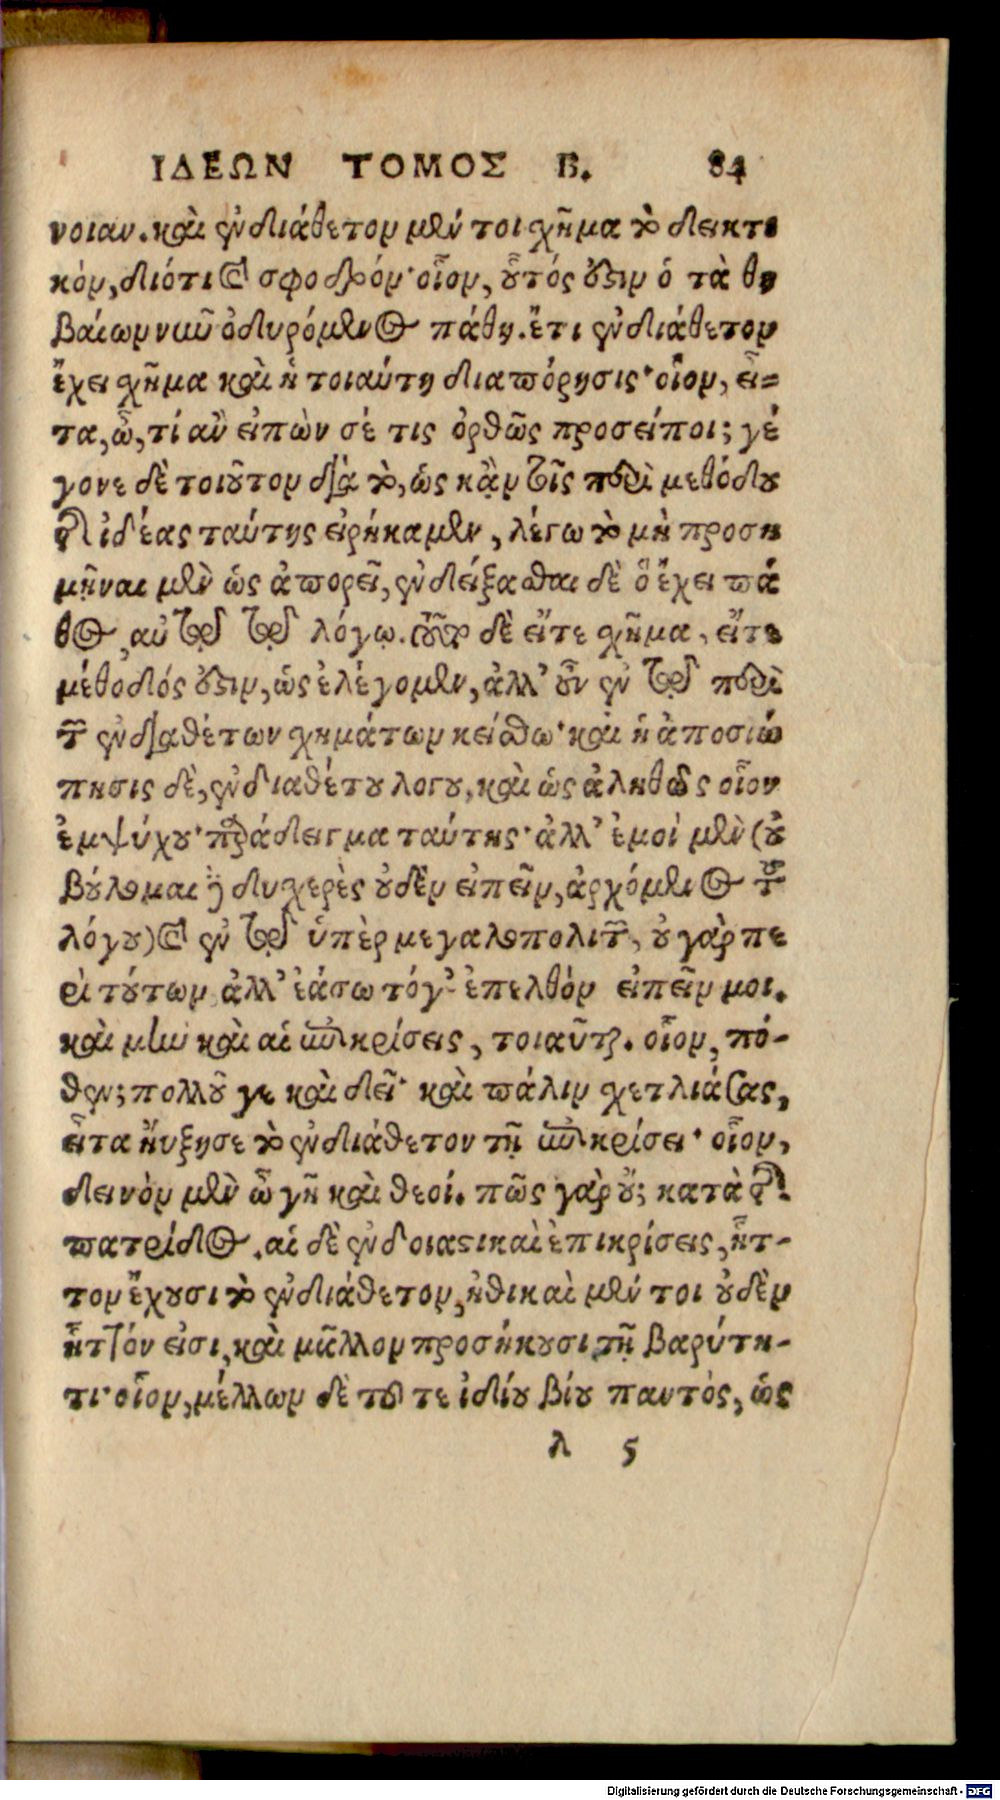 ΙΔΕΩΝ ΤΟΜΟΣ Β. 84
νοιαν. καὶ ἐνδιάθετον μέν τοι χῆμα τὸ δεικτι
κὸν, διότι καὶ σφοδρόν· οἷον, οὗτός ἐστιν ὁ τὰ θη
βαίων νιῦ ὀδυρόμενος πάθη. ἔτι ἐνδιάθετον
ἔχει χῆμα καὶ ἡ τοιαύτη διαπόρησις· οἷον, εἶ=
τα, ὦ, τί ἂν εἰπὼν σέ τις ὀρθῶς προσείποι; γέ
γονε δὲ τοιοῦτον διὰ τὸ, ὡς κἂν τοῖς περὶ μεθόδου
τῆς ἰδέας ταύτης εἰρήκαμεν, λέγω τὸ μὴ προση
μῆναι μὲν ὡς ἀπορεῖ, ἐνδείξασθαι δὲ ὃ ἔχει πά
θος, αὐτῷ τῷ λόγῳ. τοῦτο δὲ εἴτε χῆμα, εἴτε
μέθοδός ἐστιν, ὡς ἐλέγομεν, ἀλλ' οὖν ἐν τῷ περὶ
τῶν ἐνδιαθέτων χημάτων κείσθω· καὶ ἡ ἀποσιώ
πησις δὲ, ἐνδιαθέτου λογου, καὶ ὡς ἀληθῶς οἷον
ἐμψύχου· παράδειγμα ταύτης· ἀλλ' ἐμοὶ μὲν (οὐ
βούλομαι δὲ δυχερὲς οὐδὲν εἰπεῖν, ἀρχόμενος τοῦ
λόγου) καὶ ἐν τῷ ὑπὲρ μεγαλοπολιτῶν, οὐ γὰρ πε
ρὶ τούτων ἀλλ' ἐάσω τόγ' ἐπελθὸν εἰπεῖν μοι.
καὶ μὴν καὶ αἱ ἐπικρίσεις, τοιαῦται. οἷον, πό-
θεν; πολλοῦ γε καὶ δεῖ· καὶ πάλιν χετλιάσας,
εἶτα ηὔξησε τὸ ἐνδιάθετον τῇ ἐπικρίσει· οἷον,
δεινὸν μὲν ὦ γῆ καὶ θεοί. πῶς γὰρ οὔ; κατὰ τῆς
πατρίδος. αἱ δὲ ἐνδοιαστικαὶ ἐπικρίσεις, ἧτ-
τον ἔχουσι τὸ ἐνδιάθετον, ἠθικαὶ μέν τοι οὐδὲν
ἧττόν εἰσι, καὶ μᾶλλον προσήκουσι τῇ βαρύτη-
τι· οἷον, μέλλων δὲ τοῦ τε ἰδίου βίου παντὸς, ὡς
λ 5
Digitalisierung gefördert durch die Deutsche Forschungsgemeinschaft - DFG